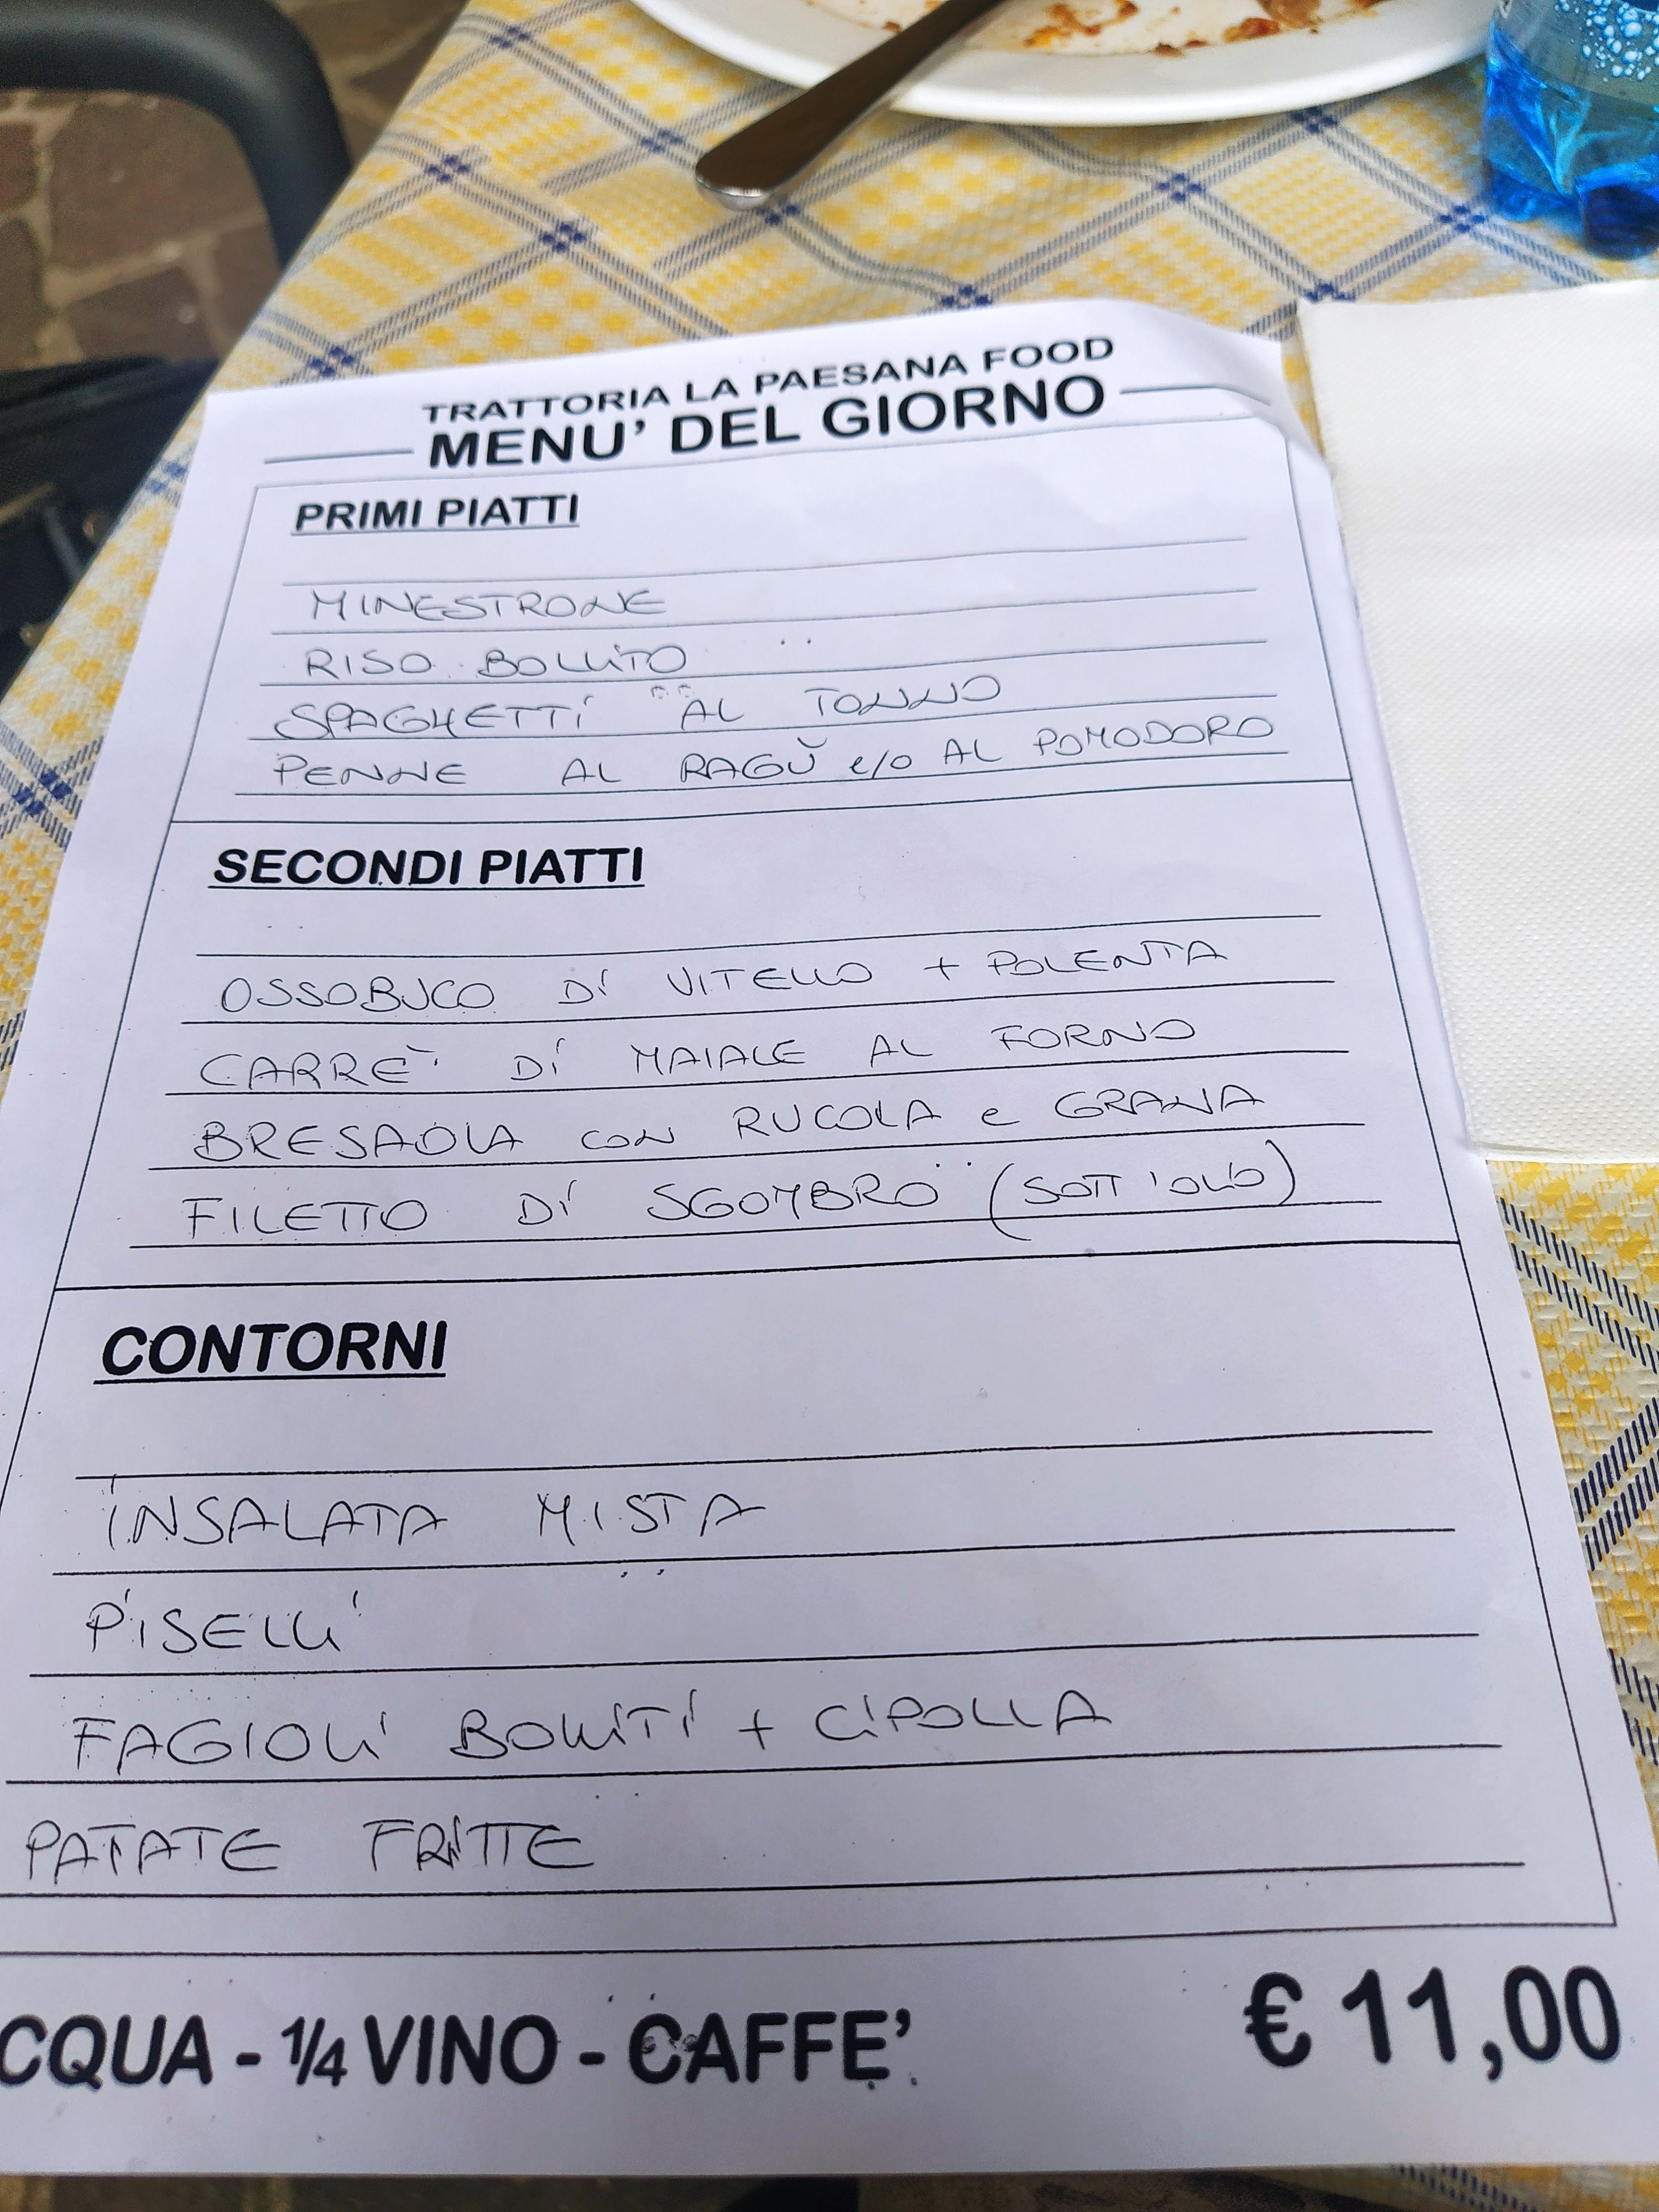 TRATTORIA LA PAESANA FOOD
MENU' DEL GIORNO
PRIMI PIATTI
MINESTRONE
RISO BOLLITO
SPAGHETTI AL TONNO
PENNE AL RAGÙ e/o AL POMODORO
SECONDI PIATTI
OSSOBUCO DI VITELLO + POLENTA
CARRE' DI MAIALE AL FORNO
BRESAOLA CON RUCOLA e GRANA
FILETTO DI SGOMBRO (SOTT'OLIO)
CONTORNI
INSALATA MISTA
PISELLI
FAGIOLI BOLLITI + CIPOLLA
PATATE FRITTE
CQUA - 1/4 VINO - CAFFE' € 11,00